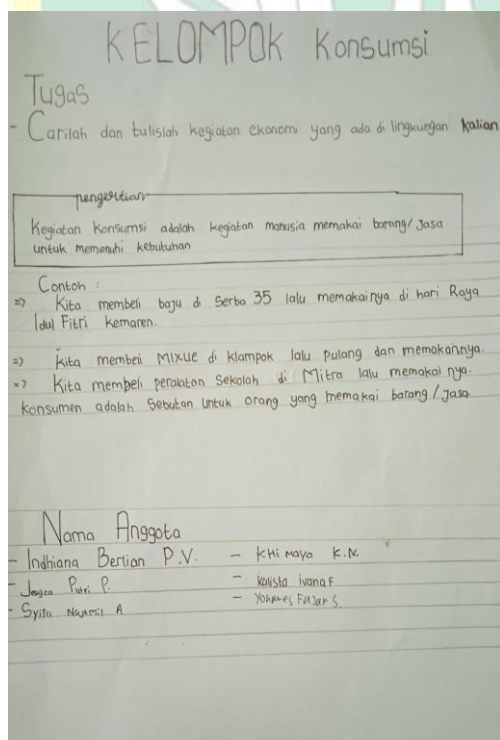 KELOMPOK Konsumsi
Tugas
- Carilah dan tulislah kegiatan ekonomi yang ada di lingkungan kalian
pengertian
Kegiatan Konsumsi adalah kegiatan manusia memakai barang/Jasa
untuk memenuhi kebutuhan
Contoh :
=> Kita membeli baju di Serba 35 lalu memakainya di hari Raya
Idul Fitri kemaren.
=> Kita membeli MIXUE di klampok lalu pulang dan memakannya.
=> Kita membeli peralatan Sekolah di Mitra lalu memakai nya.
Konsumen adalah Sebutan untuk orang yang memakai barang/Jasa
Nama Anggota
- Indhiana Bertian P.V.
- Jesyca Putri P.
- Syifa A
- KHi maya K.N.
- Kalista Ivana F
- Yohanes Fajar S.